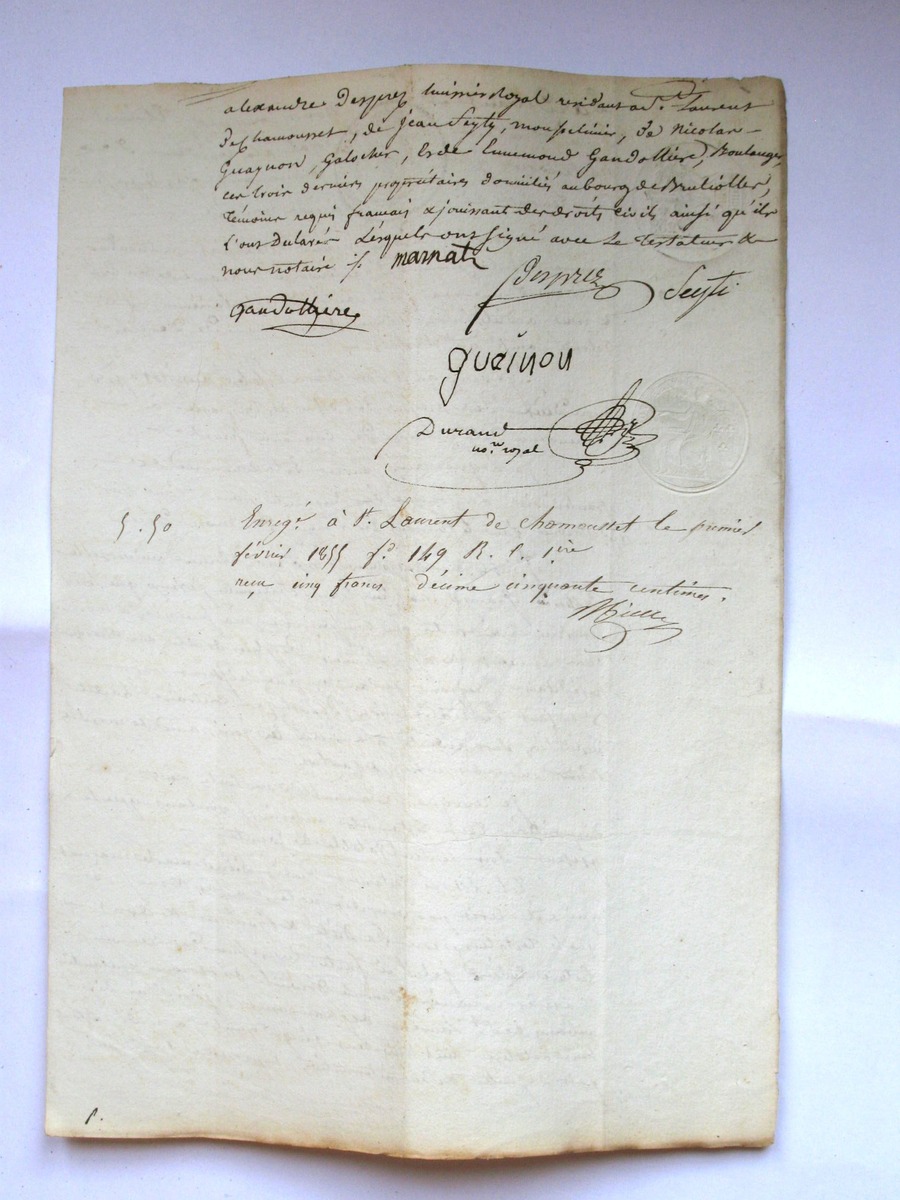 alexandre Desprez huissier Royal residant a St. Laurent
De Chamousset, de Jean Seyty, mousselinier, De Nicolas
Guaynon Galocher, & de Ennemond Gandollière, Boulanger,
ces trois derniers propriétaires domiciliés au bourg de Brulioller,
témoins requis francais & jouissant des droits civils ainsi qu'ils
l'ont Declaré Lesquels ont signé avec Le testateur &
nous notaire /.
marnat
Desprez
Seyti
Gandollière
gueinon
Durand
no.re royal
5.50
Enregé à St. Laurent de chamousset le premier
février 1855 fo. 149 R. c. 1ère
reçu cinq francs décime cinquante centimes.